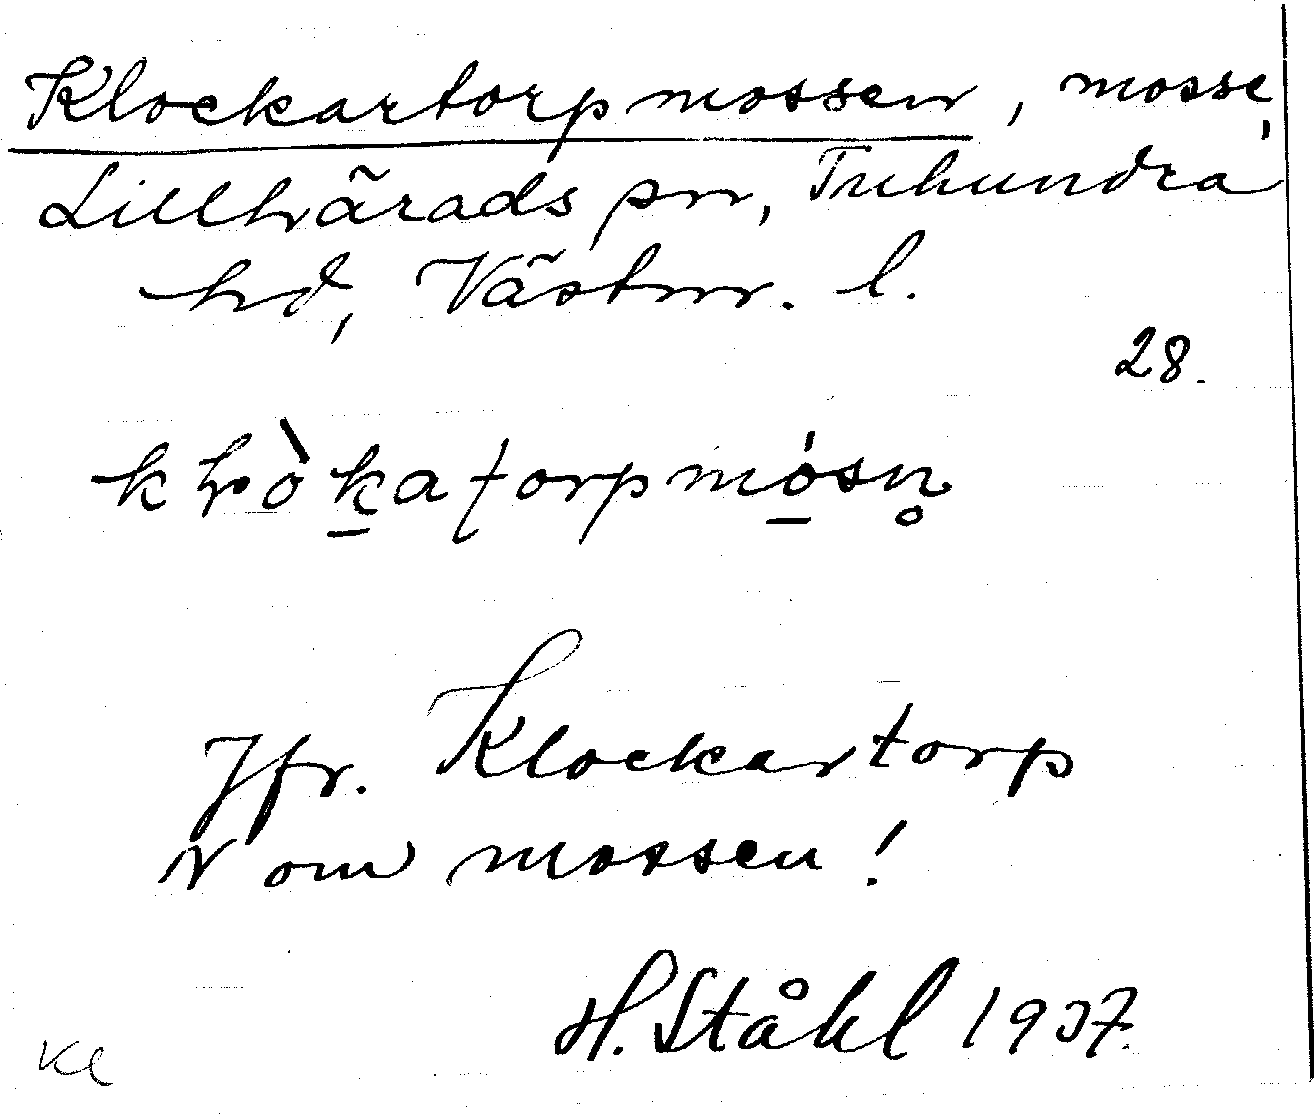 Klockartorpmossen, mosse,
Lillhärads sn, Tuhundra
hd, Västm. l.
28.
Jfr. Klockartorp
N om mossen!
H. Ståhl 1937.
Kl